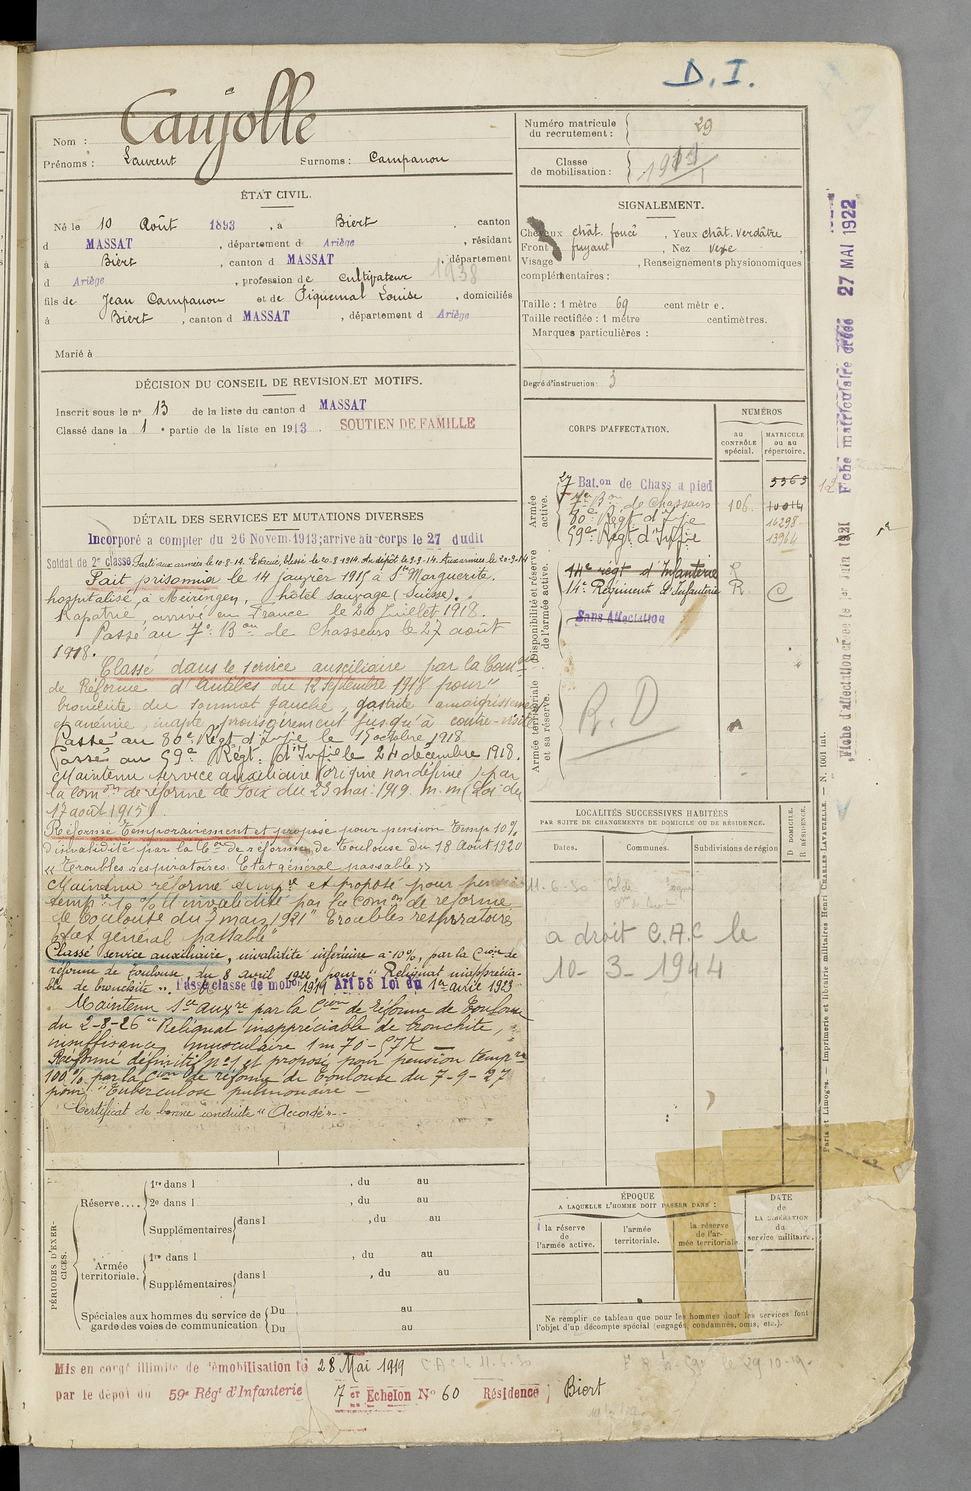 D. I.
Nom : Caujolle
Prénoms : Laurent Surnoms : Campanou
Numéro matricule du recrutement : 29
Classe de mobilisation :
ÉTAT CIVIL.
Né le 10 Août 1893, à Biert, canton
d MASSAT, département d Ariège, résidant
à Biert, canton d MASSAT, département
d Ariège, profession de cultivateur 1938
fils de Jean Campanou et de Piquemal Louise, domiciliés
à Biert, canton d MASSAT, département d Ariège
Marié à
SIGNALEMENT.
Cheveux chât. foncé, Yeux chât. verdâtre
Front fuyant, Nez vexe
Visage , Renseignements physionomiques
complémentaires :
Taille : 1 mètre 69 centimètre.
Taille rectifiée : 1 mètre centimètres.
Marques particulières :
Degré d'instruction : 3
DÉCISION DU CONSEIL DE REVISION ET MOTIFS.
Inscrit sous le n° 13 de la liste du canton d MASSAT
Classé dans la 1e partie de la liste en 1913. SOUTIEN DE FAMILLE
CORPS D'AFFECTATION.
NUMÉROS
AU CONTRÔLE spécial.
MATRICULE ou au répertoire.
Armée active.
27 Bat.on de Chass à pied
7e Bon de Chasseurs 106
80e Régt d'Infie 16298
59e Régt d'Infie 13964
Disponibilité et réserve de l'armée active.
14e régt d'Infanterie R
14e Régiment d'Infanterie R C
Sans Affectation
Armée territoriale et sa réserve.
R. D
DÉTAIL DES SERVICES ET MUTATIONS DIVERSES
Incorporé à compter du 26 Novem. 1913; arrivé au corps le 27 dudit
Soldat de 2e classe Parti aux armées le 10-8-14. Evacué, blessé le 20-8-1914. Au dépôt le 9-9-14. Aux armées le 20-9-14
Fait prisonnier le 14 janvier 1915 à Ste Marguerite.
hospitalisé à Meiringen, hôtel sauvage (Suisse).
Rapatrié, arrivé en France le 20 Juillet 1918.
Passé au 7e Bon de Chasseurs le 27 août
1918.
Classé dans le service auxiliaire par la Comon
de Réforme d'Antibes du 12 Septembre 1918 pour "
bronchite du sommet gauche, gastrite amaigrissement
et anémie, inapte provisoirement jusqu'à contre-visite
Passé au 80e Régt d'Infie le 15 octobre 1918
Passé au 59e Régt d'Infie le 24 décembre 1918.
Maintenu service auxiliaire (origine non définie) par
la comon de réforme de Foix du 23 mai 1919. m.m (Loi du
17 août 1915).
Réformé Temporairement et proposé pour pension Temp 10%
d'invalidité par la Con de réforme de Toulouse du 18 Août 1920
« Troubles respiratoires. Etat général passable »
Maintenu réformé temp.re et proposé pour pension
temp.re 10% d'invalidité par la comon de réforme
de Toulouse du 3 mars 1921 " Troubles respiratoires
Etat général passable"
Classé service auxiliaire, invalidité inférieure à 10%, par la Con de
réforme de Toulouse, du 8 avril 1922 pour "Reliquat inappréciable
de bronchite". Passé classe de mobon 1919 Art 58 Loi du 1er avril 1923
Maintenu sce auxre par la Con de Réforme de Toulouse
du 2-8-26 "Reliquat inappréciable de bronchite,
insuffisance musculaire 1m70 - 57K
Réformé définitif N°1 et proposé pour pension tempre
100% par la Con de réforme de Toulouse du 7-9-27
pour "Tuberculose pulmonaire
Certificat de bonne conduite "Accordé".
LOCALITÉS SUCCESSIVES HABITÉES
PAR SUITE DE CHANGEMENTS DE DOMICILE OU DE RÉSIDENCE.
Dates. Communes. Subdivisions de région D DOMICILE. R RÉSIDENCE.
11-6-30
a droit C.A.C le
10-3-1944
PÉRIODES D'EXERCICES.
Réserve....
1re dans l , du au
2e dans l , du au
Supplémentaires dans l , du au
Armée territoriale.
1re dans l , du au
Supplémentaires dans l , du au
Spéciales aux hommes du service de garde des voies de communication. Du au
Du au
ÉPOQUE
A LAQUELLE L'HOMME DOIT PASSER DANS :
la réserve de l'armée active.
l'armée territoriale.
la réserve de l'armée territoriale
DATE de LA LIBÉRATION du service militaire.
Ne remplir ce tableau que pour les hommes dont les services font
l'objet d'un décompte spécial (engagés, condamnés, omis, etc.).
Mis en congé illimité de démobilisation le 28 Mai 1919
par le dépôt du 59e Régt d'Infanterie 7er Echelon N° 60 Résidence Biert
Fiche matriculaire créée 27 MAI 1922
Fiche d'affectation créée le 1er Juin 1921
Paris et Limoges. — Imprimerie et librairie militaires Henri CHARLES-LAVAUZELLE. — N. 1001 int.